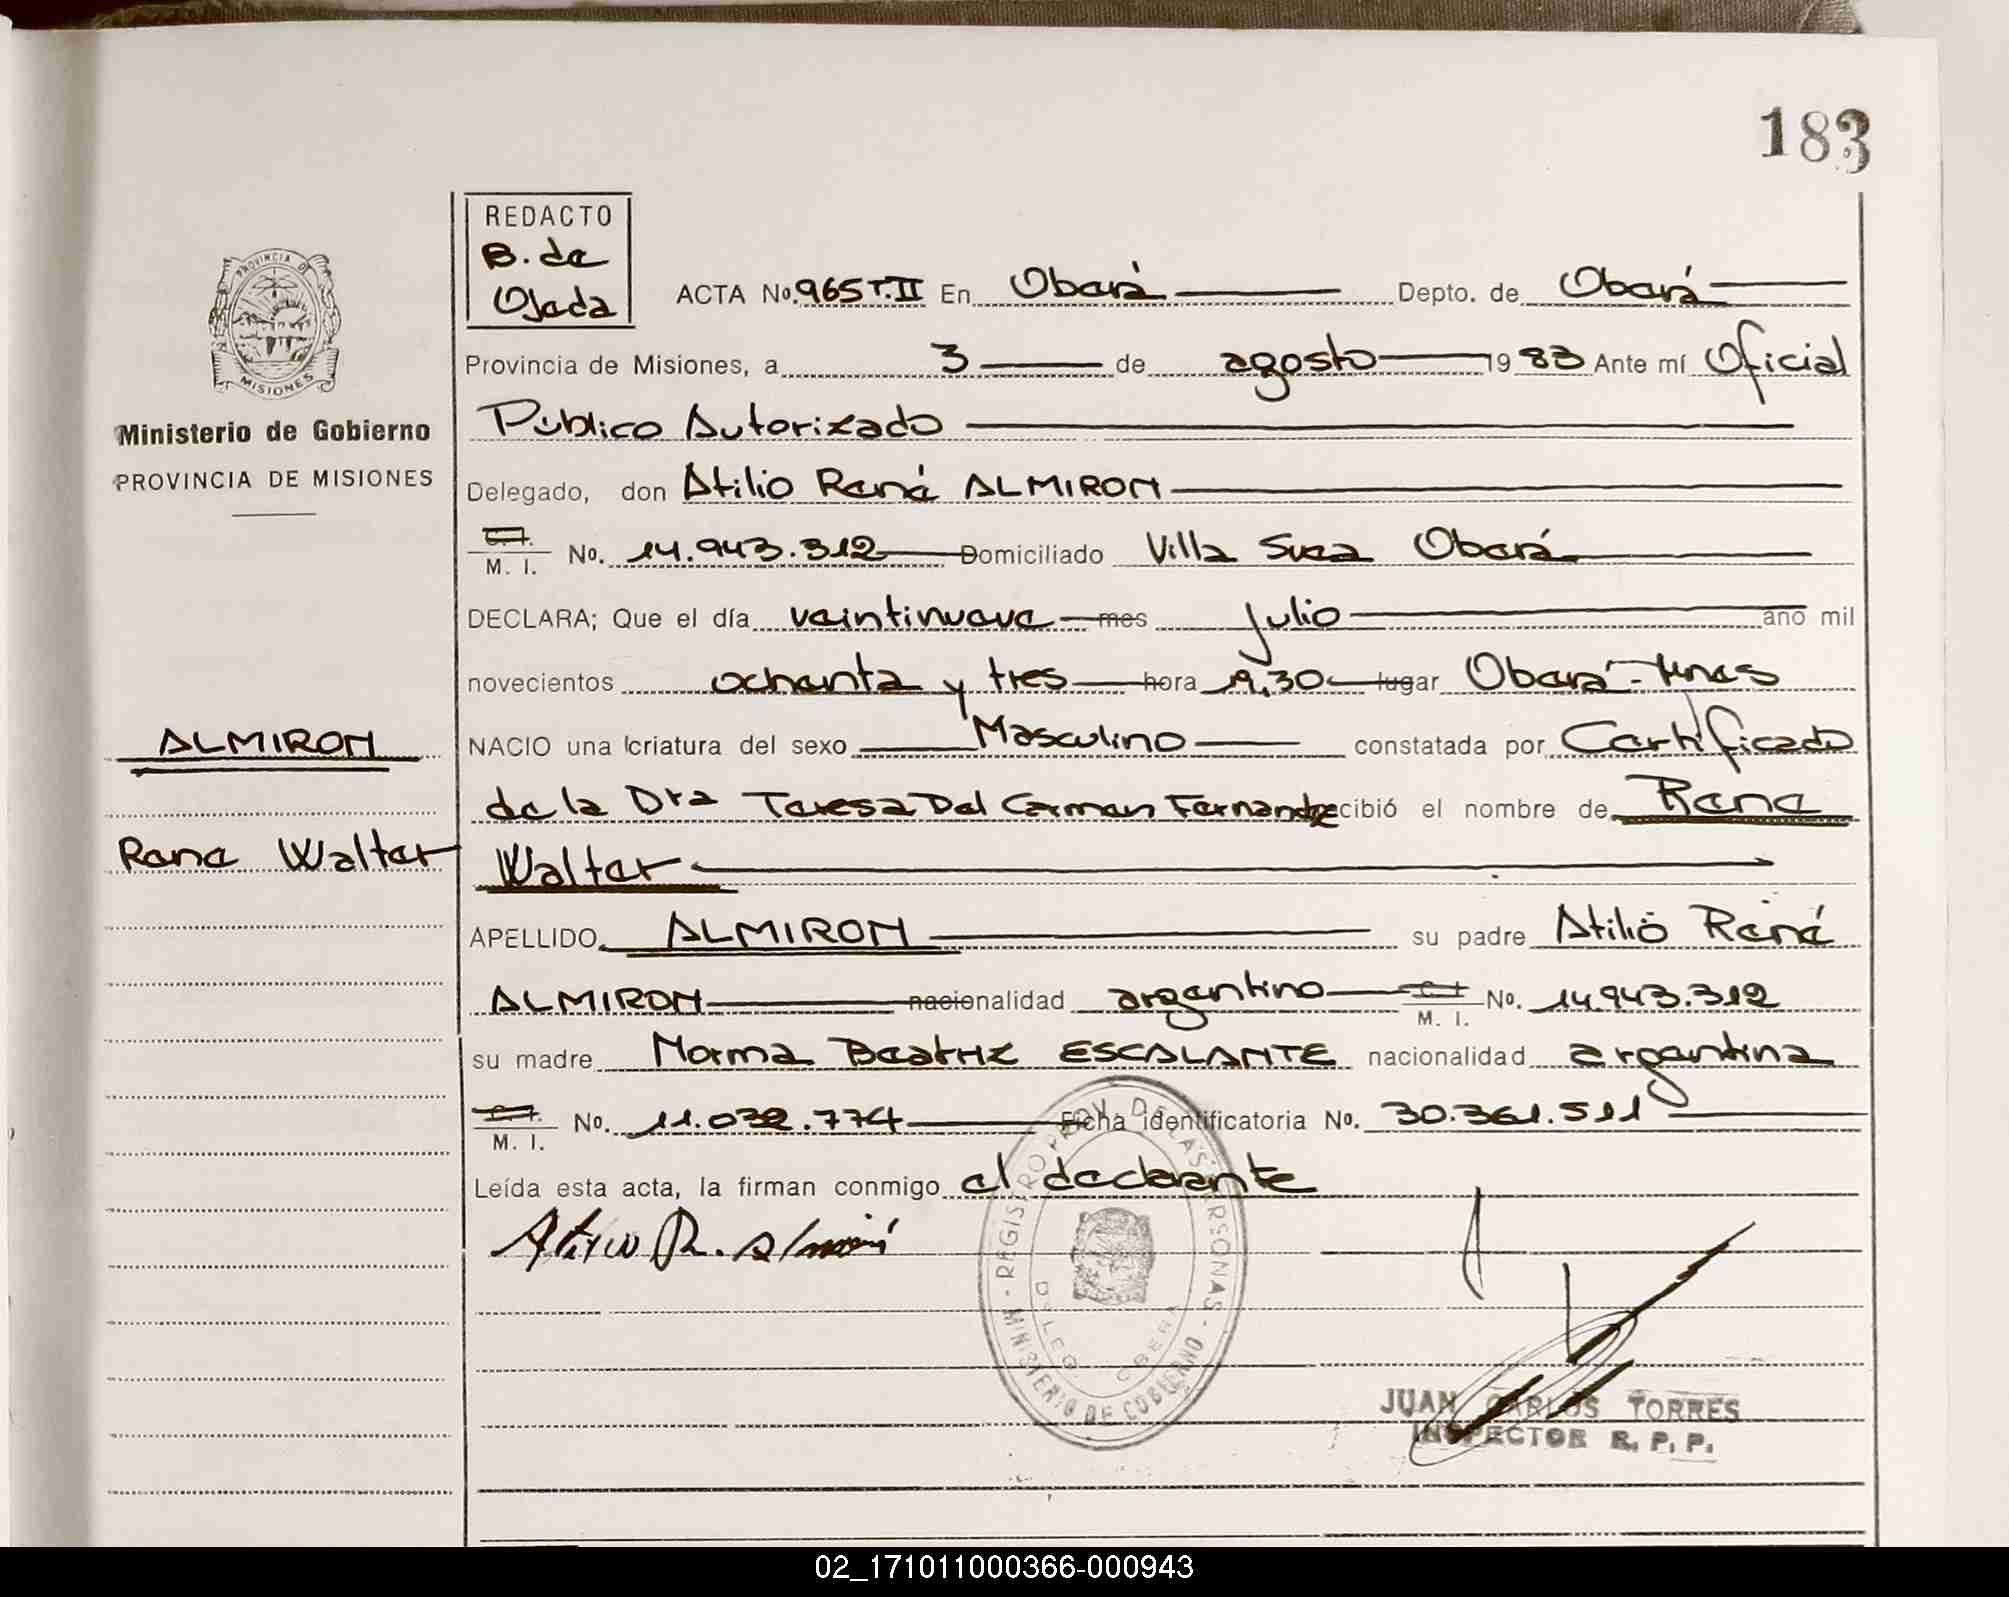 183
REDACTO
B. de
Ojeda
PROVINCIA DE
MISIONES
Ministerio de Gobierno
PROVINCIA DE MISIONES
ACTA No. 965 T.II En Oberá Depto. de Oberá
Provincia de Misiones, a 3 de agosto 1983 Ante mí Oficial
Público Autorizado
Delegado, don Atilio René ALMIRON
C.I. M. I. No. 14.943.312 Domiciliado Villa Svea Oberá
DECLARA; Que el día veintinueve mes julio año mil
novecientos ochenta y tres hora 19,30 lugar Oberá-Mnes
ALMIRON
NACIO una criatura del sexo Masculino constatada por Certificado
de la Dra Teresa Del Carmen Fernandez recibió el nombre de Rene
Rene Walter
Walter
APELLIDO ALMIRON su padre Atilio René
ALMIRON nacionalidad argentino C.I. M. I. No. 14.943.312
su madre Norma Beatriz ESCALANTE nacionalidad argentina
C.I. M. I. No. 11.032.774 Ficha identificatoria No. 30.361.511
Leída esta acta, la firman conmigo el declarante
Atilio R. Almirón
REGISTRO PROV. DE LAS PERSONAS - MINISTERIO DE GOBIERNO -
DELEG. OBERA
JUAN CARLOS TORRES
INSPECTOR R. P. P.
02_171011000366-000943